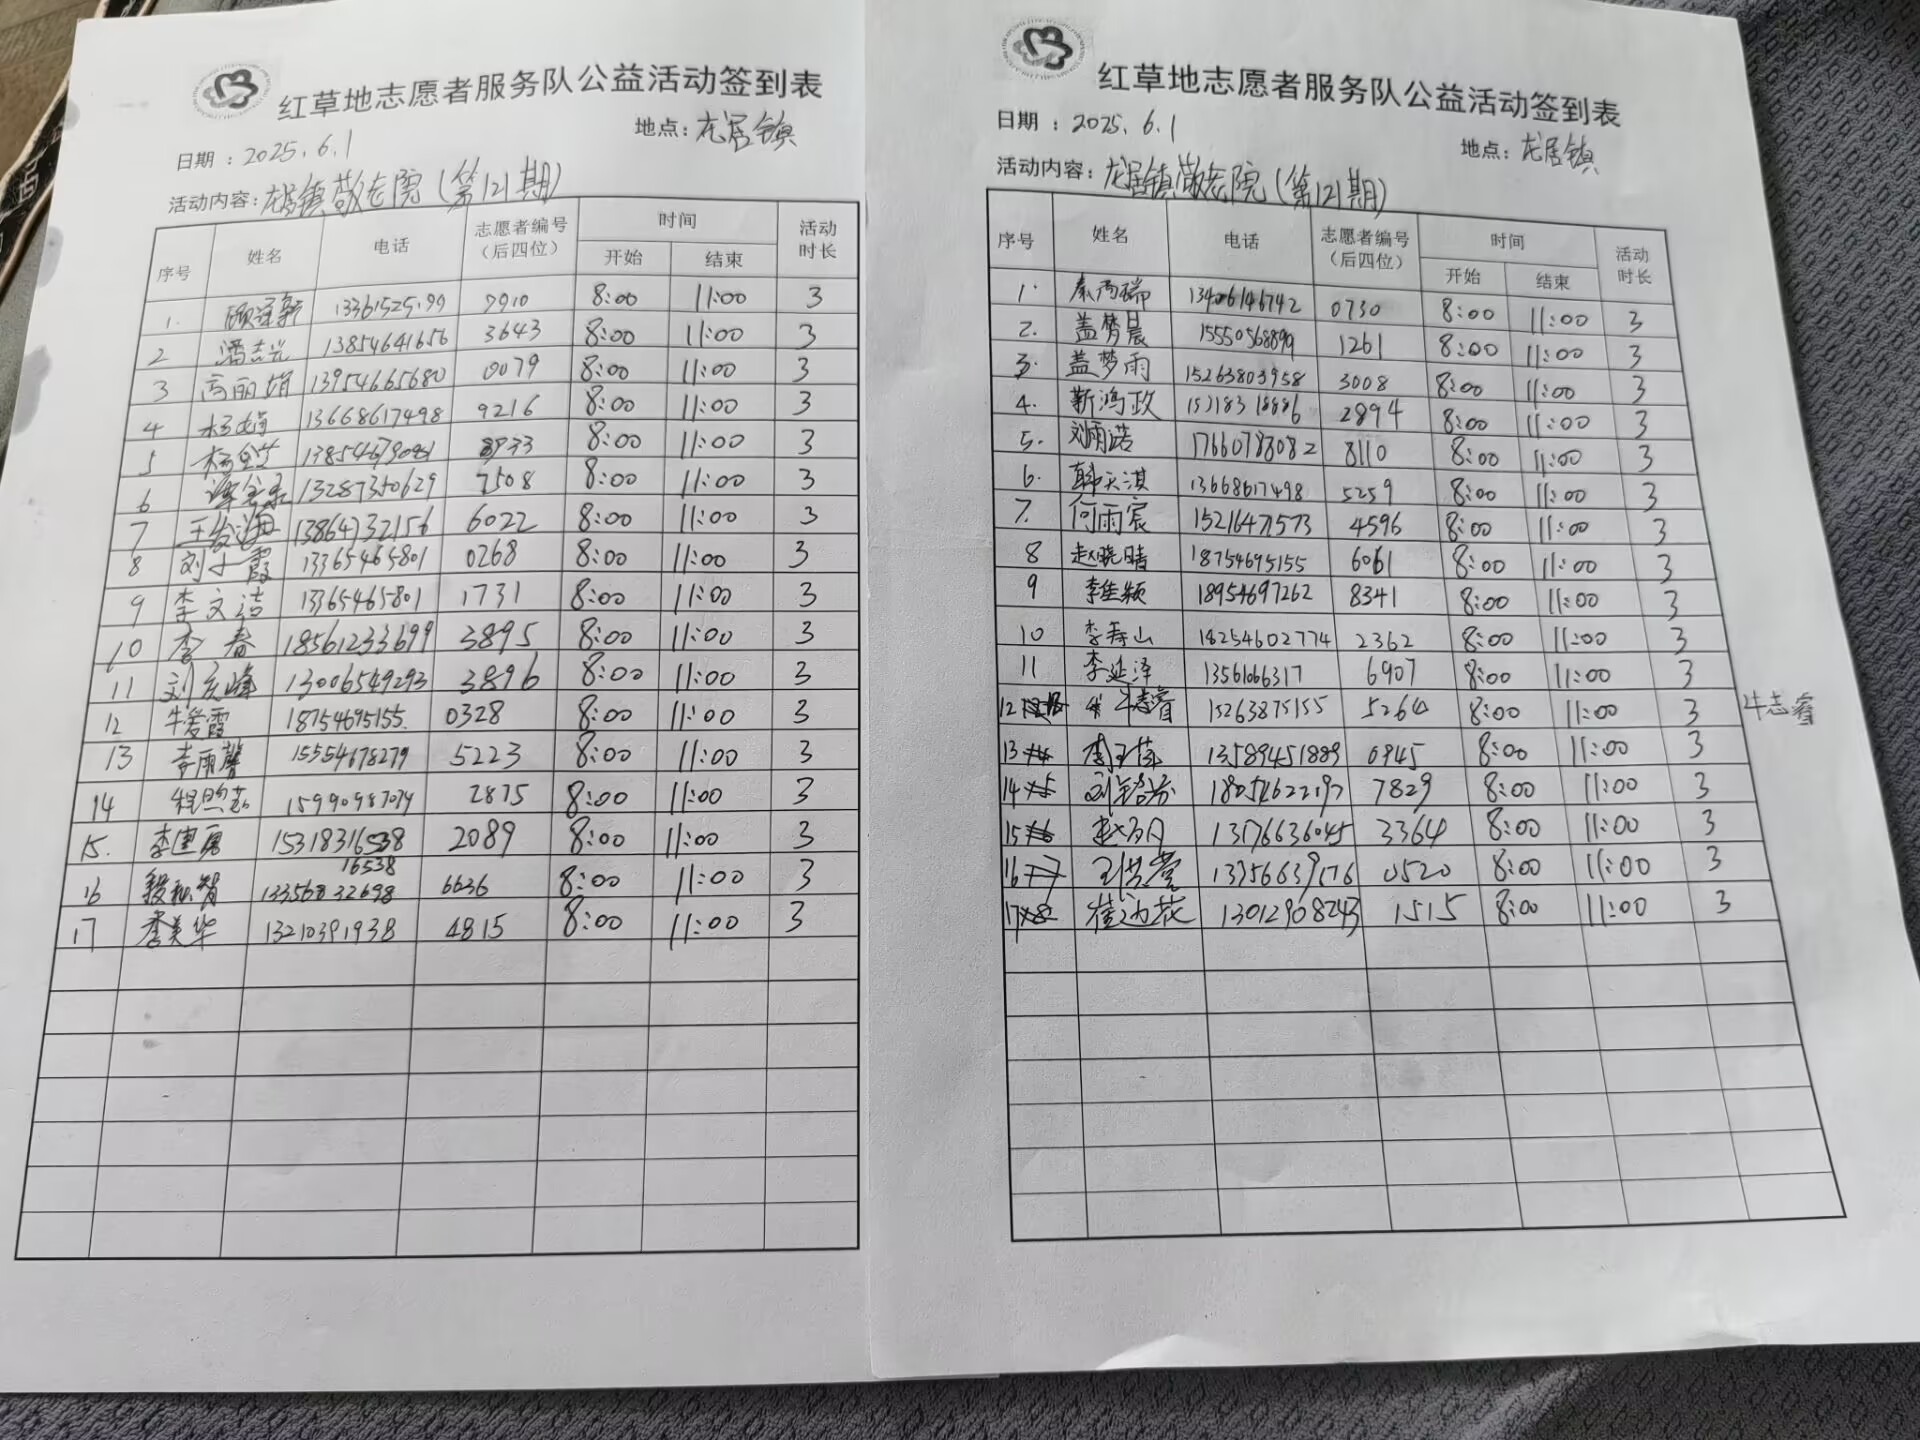 红草地志愿者服务队公益活动签到表
日期：2025.6.1 地点：龙居镇
活动内容：龙居镇敬老院（第121期）
序号 姓名 电话 志愿者编号（后四位） 时间 开始 结束 活动时长
1. 13361525199 7910 8:00 11:00 3
2 潘志兴 13854641656 3643 8:00 11:00 3
3 高丽娟 13954665680 0079 8:00 11:00 3
4 杨娟 13668617498 9216 8:00 11:00 3
5 8:00 11:00 3
6 13287350629 7508 8:00 11:00 3
7 王俊海 13864732156 6022 8:00 11:00 3
8 刘小霞 13365465801 0268 8:00 11:00 3
9 李文洁 13365465801 1731 8:00 11:00 3
10 李春 18561233699 3895 8:00 11:00 3
11 刘庆峰 13006549293 3896 8:00 11:00 3
12 牛爱霞 18754695155 0328 8:00 11:00 3
13 李雨馨 15554678279 5223 8:00 11:00 3
14 程照 2875 8:00 11:00 3
15. 李建勇 15318316538 2089 8:00 11:00 3
16538
16 6636 8:00 11:00 3
17 李美华 13210391938 4815 8:00 11:00 3
红草地志愿者服务队公益活动签到表
日期：2025.6.1
地点：龙居镇
活动内容：龙居镇敬老院（第121期）
序号 姓名 电话 志愿者编号（后四位） 时间 开始 结束 活动时长
1. 秦尚瑞 13406146742 0730 8:00 11:00 3
2. 盖梦晨 15550568899 1261 8:00 11:00 3
3. 盖梦雨 15263803958 3008 8:00 11:00 3
4. 靳鸿政 15318318886 2894 8:00 11:00 3
5. 刘雨诺 17660783082 8110 8:00 11:00 3
6. 韩天淇 13668617498 5259 8:00 11:00 3
7. 何雨宸 15216471573 4596 8:00 11:00 3
8 赵晓晴 18754695155 6061 8:00 11:00 3
9 李佳颖 18954697262 8341 8:00 11:00 3
10 李寿山 18254602774 2362 8:00 11:00 3
11 李延泽 13561066317 6907 8:00 11:00 3
12 牛志睿 15263875155 5264 8:00 11:00 3 牛志睿
13 李玉萍 13589451889 0945 8:00 11:00 3
14 刘铭芬 18054622197 7829 8:00 11:00 3
15 赵百月 13176636045 3364 8:00 11:00 3
16 王洪莹 0520 8:00 11:00 3
17 崔迎花 13012908243 1515 8:00 11:00 3